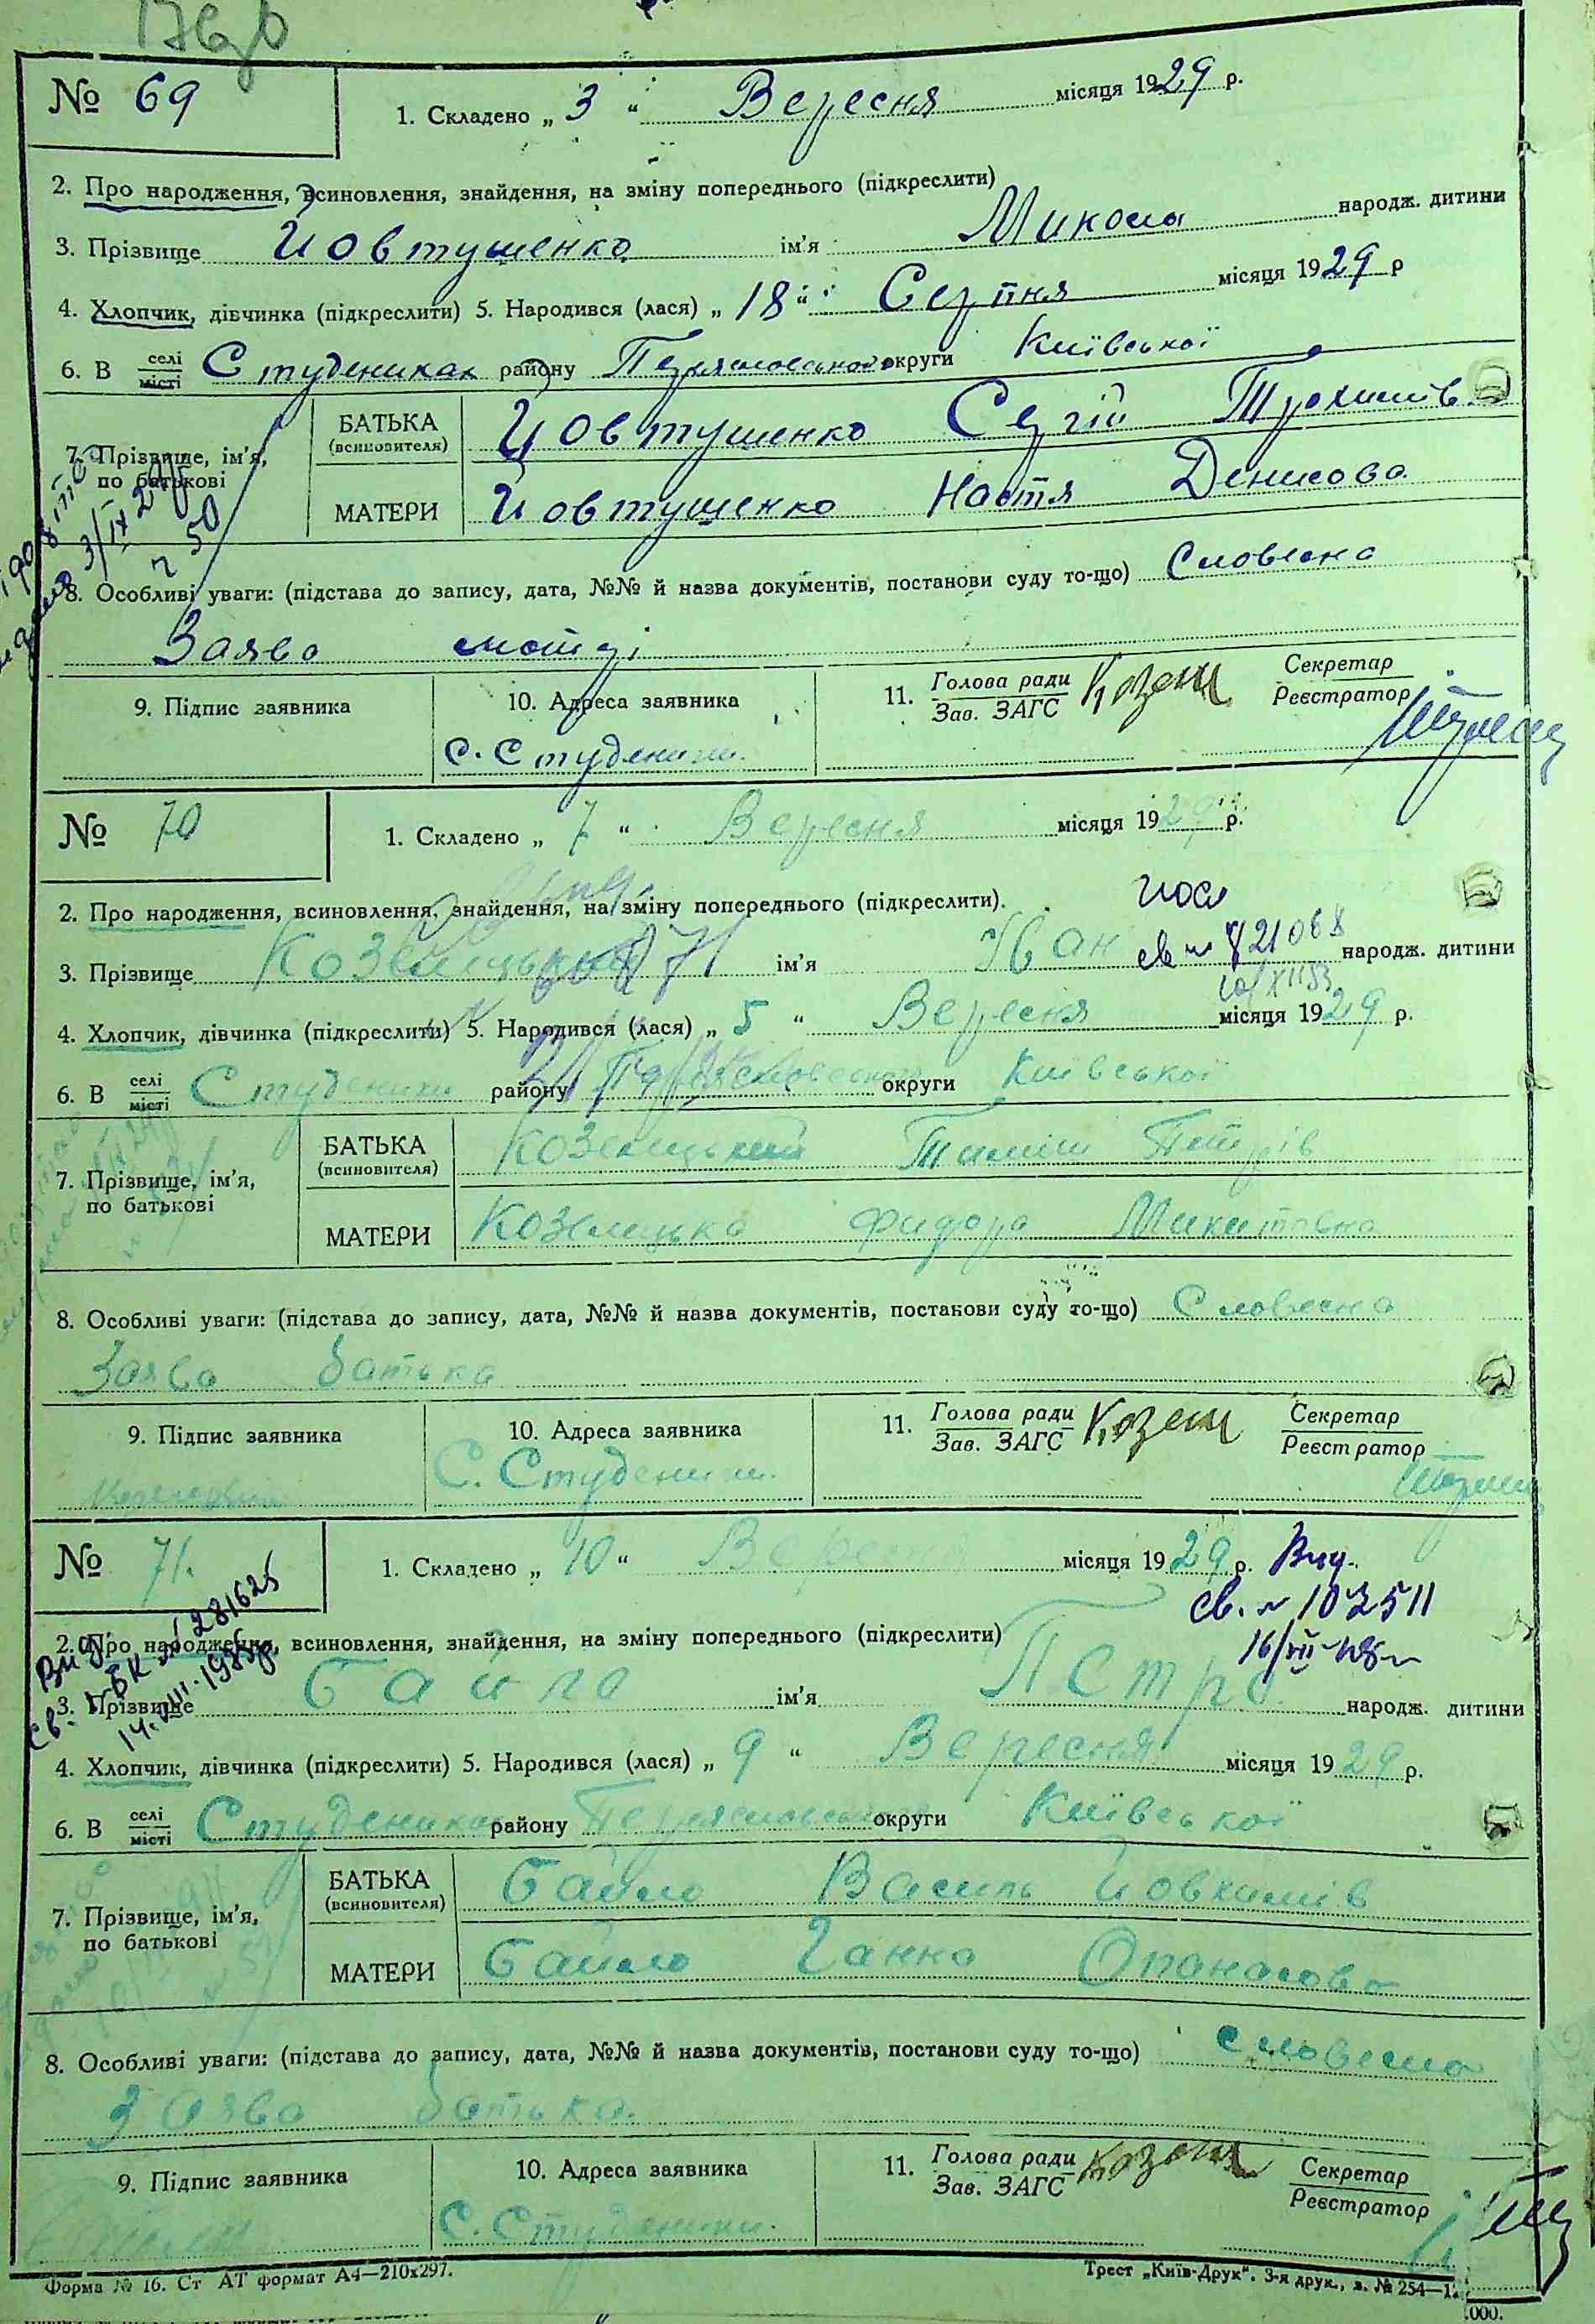 № 69
1. Складено „ 3 “ Вересня місяця 1929 р.
2. Про народження, всиновлення, знайдення, на зміну попереднього (підкреслити)
3. Прізвище Йовтушенко ім’я Микола народж. дитини
4. Хлопчик, дівчинка (підкреслити) 5. Народився (лася) „ 18 “ Серпня місяця 1929 р
6. В селі/місті Студениках району округи Київської
7. Прізвище, ім’я, по батькові
БАТЬКА (всиновителя) Йовтушенко Сергій Трохимів
МАТЕРИ Йовтушенко Настя Денисова
3/IX 29
8. Особливі уваги: (підстава до запису, дата, №№ й назва документів, постанови суду то-що) Словесна
Заява матері
9. Підпис заявника
10. Адреса заявника
с. Студеники
11. Голова ради Зав. ЗАГС
Секретар Реєстратор
№ 70
1. Складено „ 7 “ Вересня місяця 1929 р.
2. Про народження, всиновлення, знайдення, на зміну попереднього (підкреслити).
3. Прізвище ім’я Іван народж. дитини
4. Хлопчик, дівчинка (підкреслити) 5. Народився (лася) „ 5 “ Вересня місяця 1929 р.
6. В селі/місті Студеники району округи Київської
7. Прізвище, ім’я, по батькові
БАТЬКА (всиновителя) Козелицький Тиміш Петрів
МАТЕРИ Козелицька Фидора Микитовна
8. Особливі уваги: (підстава до запису, дата, №№ й назва документів, постанови суду то-що) Словесна
Заява батька
9. Підпис заявника
10. Адреса заявника
С. Студеники.
11. Голова ради Зав. ЗАГС
Секретар Реєстратор
№ 71.
1. Складено „ 10 “ Вересня місяця 1929 р.
Св. № 102511
2. Про народження, всиновлення, знайдення, на зміну попереднього (підкреслити)
3. Прізвище Байло ім’я Петро народж. дитини
4. Хлопчик, дівчинка (підкреслити) 5. Народився (лася) „ 9 “ Вересня місяця 1929 р.
6. В селі/місті Студениках району округи Київської
7. Прізвище, ім’я, по батькові
БАТЬКА (всиновителя) Байло Василь Йовхимів
МАТЕРИ Байло Ганна Опанасова
8. Особливі уваги: (підстава до запису, дата, №№ й назва документів, постанови суду то-що) Словесна
Заява батька.
9. Підпис заявника
10. Адреса заявника
С. Студеники.
11. Голова ради Зав. ЗАГС
Секретар Реєстратор
Форма № 16. Ст АТ формат А4—210х297.
Трест „Київ-Друк“. 3-я друк., з. № 254—1
.000.